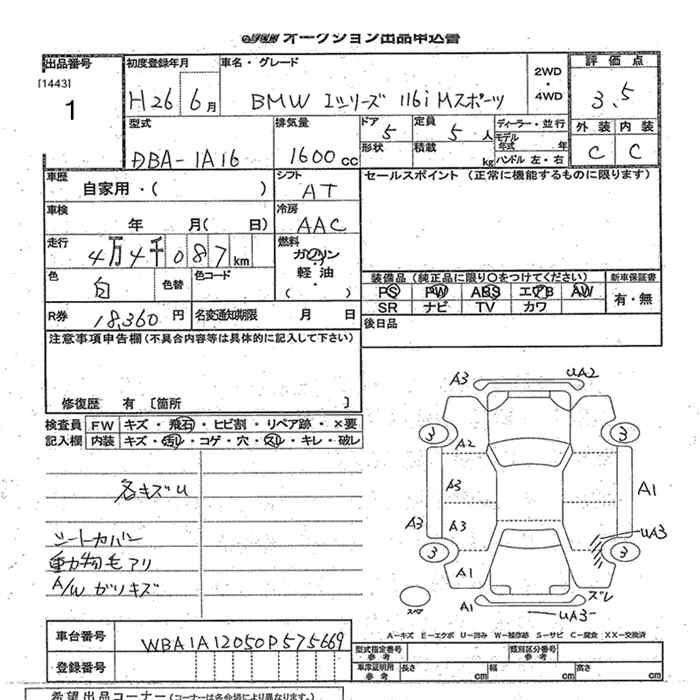 オークション出品申込書
出品番号 [1443] 1
初度登録年月 H26 6月
車名・グレード BMW 1シリーズ 116i Mスポーツ
2WD ・ 4WD
評価点 3.5
外装 内装
C C
型式 DBA-1A16
排気量 1600cc
ドア 5 定員 5人
形状 積載 kg
ディーラー・並行
モデル年式 年
ハンドル 左・右
車歴 自家用・( )
シフト AT
セールスポイント (正常に機能するものに限ります)
車検 年 月( 日)
冷房 AAC
走行 4万4千087km
燃料 ガソリン ・ 軽油 ・ ( )
色 白 色替 色コード
装備品 (純正品に限り○をつけてください)
新車保証書
PS PW ABS エアB AW
有・無
SR ナビ TV カワ
R券 18,360円
名変通知期限 月 日
後日品
注意事項申告欄(不具合内容等は具体的に記入して下さい)
修復歴 有 〔箇所 〕
検査員記入欄
FW キズ・飛石・ヒビ割・リペア跡・×要
内装 キズ・汚レ・コゲ・穴・スレ・キレ・破レ
各キズU
シートカバー
動物毛アリ
A/W ガリキズ
A3 UA2
3 3
A2
A3 A1
A3 A3 UA3
3 3
A1 ズレ
スペア A1 UA3
A-キズ E-エクボ U-凹み W-補修跡 S-サビ C-腐食 XX-交換済
車台番号 WBA1A12050P575669
登録番号
型式指定番号 参考
類別区分番号 参考
車庫証明用 参考 長さ cm 幅 cm 高さ cm
希望出品コーナー (コーナーは各会場により異なります。)